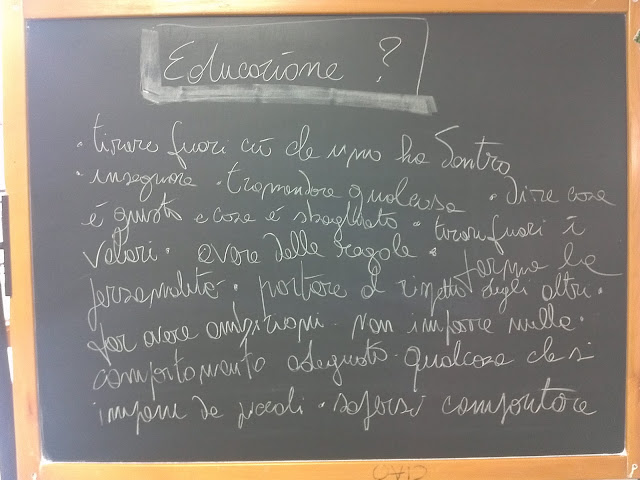 Educazione ?
• tirare fuori ciò che uno ha dentro
• insegnare • tramandare qualcosa • dire cosa
è giusto e cosa è sbagliato • tirar fuori i
valori • avere delle regole • forma la
personalità • portare al rispetto degli altri •
far avere ambizioni • non imporre nulla •
comportamento adeguato • qualcosa che si
impara da piccoli • sapersi comportare
CIAO